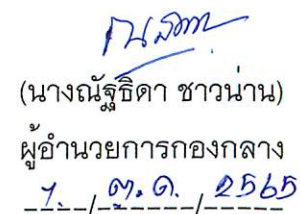 (นางณัฐธิดา ชาวน่าน)
ผู้อำนวยการกองกลาง
7. / ต.ค. / 2565